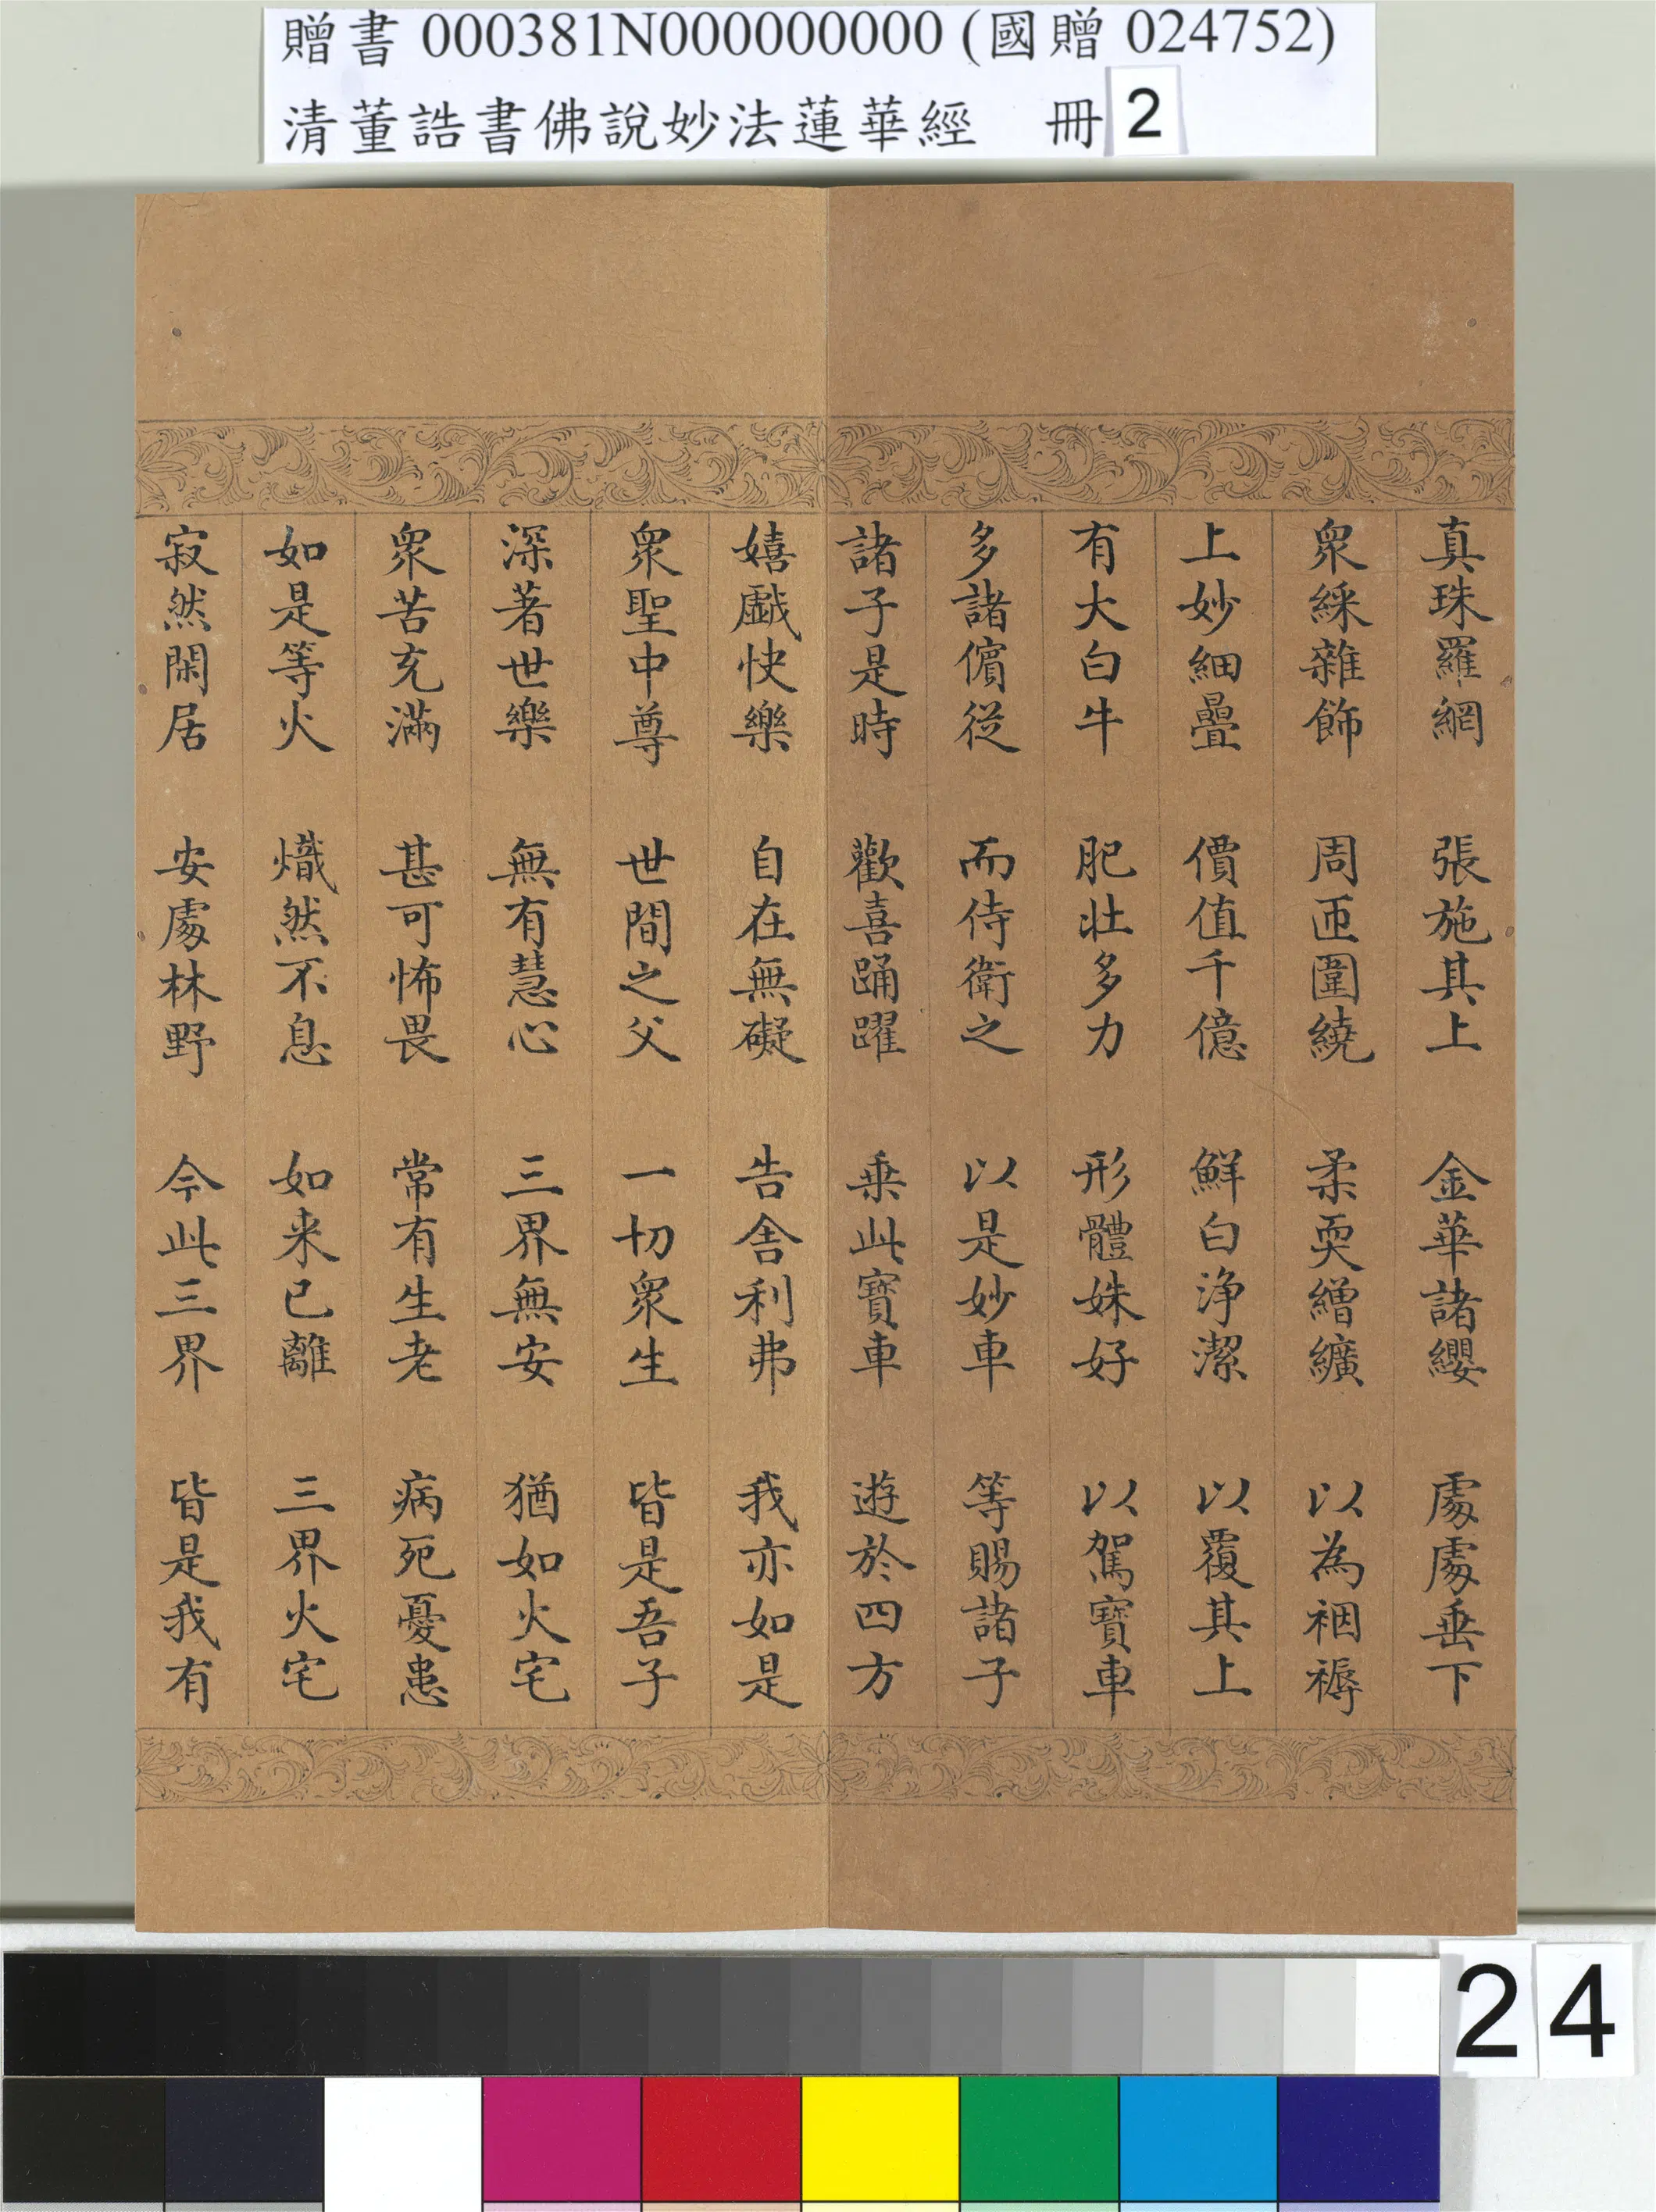 贈書 000381N000000000 (國贈 024752)
清董誥書佛說妙法蓮華經 冊 2
真珠羅網 張施其上 金華諸纓 處處垂下
衆綵雜飾 周匝圍繞 柔耎繒纊 以為裀褥
上妙細疊 價值千億 鮮白淨潔 以覆其上
有大白牛 肥壯多力 形體姝好 以駕寶車
多諸儐從 而侍衛之 以是妙車 等賜諸子
諸子是時 歡喜踊躍 乗此寶車 遊於四方
嬉戲快樂 自在無礙 告舍利弗 我亦如是
衆聖中尊 世間之父 一切衆生 皆是吾子
深著世樂 無有慧心 三界無安 猶如火宅
衆苦充滿 甚可怖畏 常有生老 病死憂患
如是等火 熾然不息 如来已離 三界火宅
寂然閑居 安處林野 今此三界 皆是我有
24